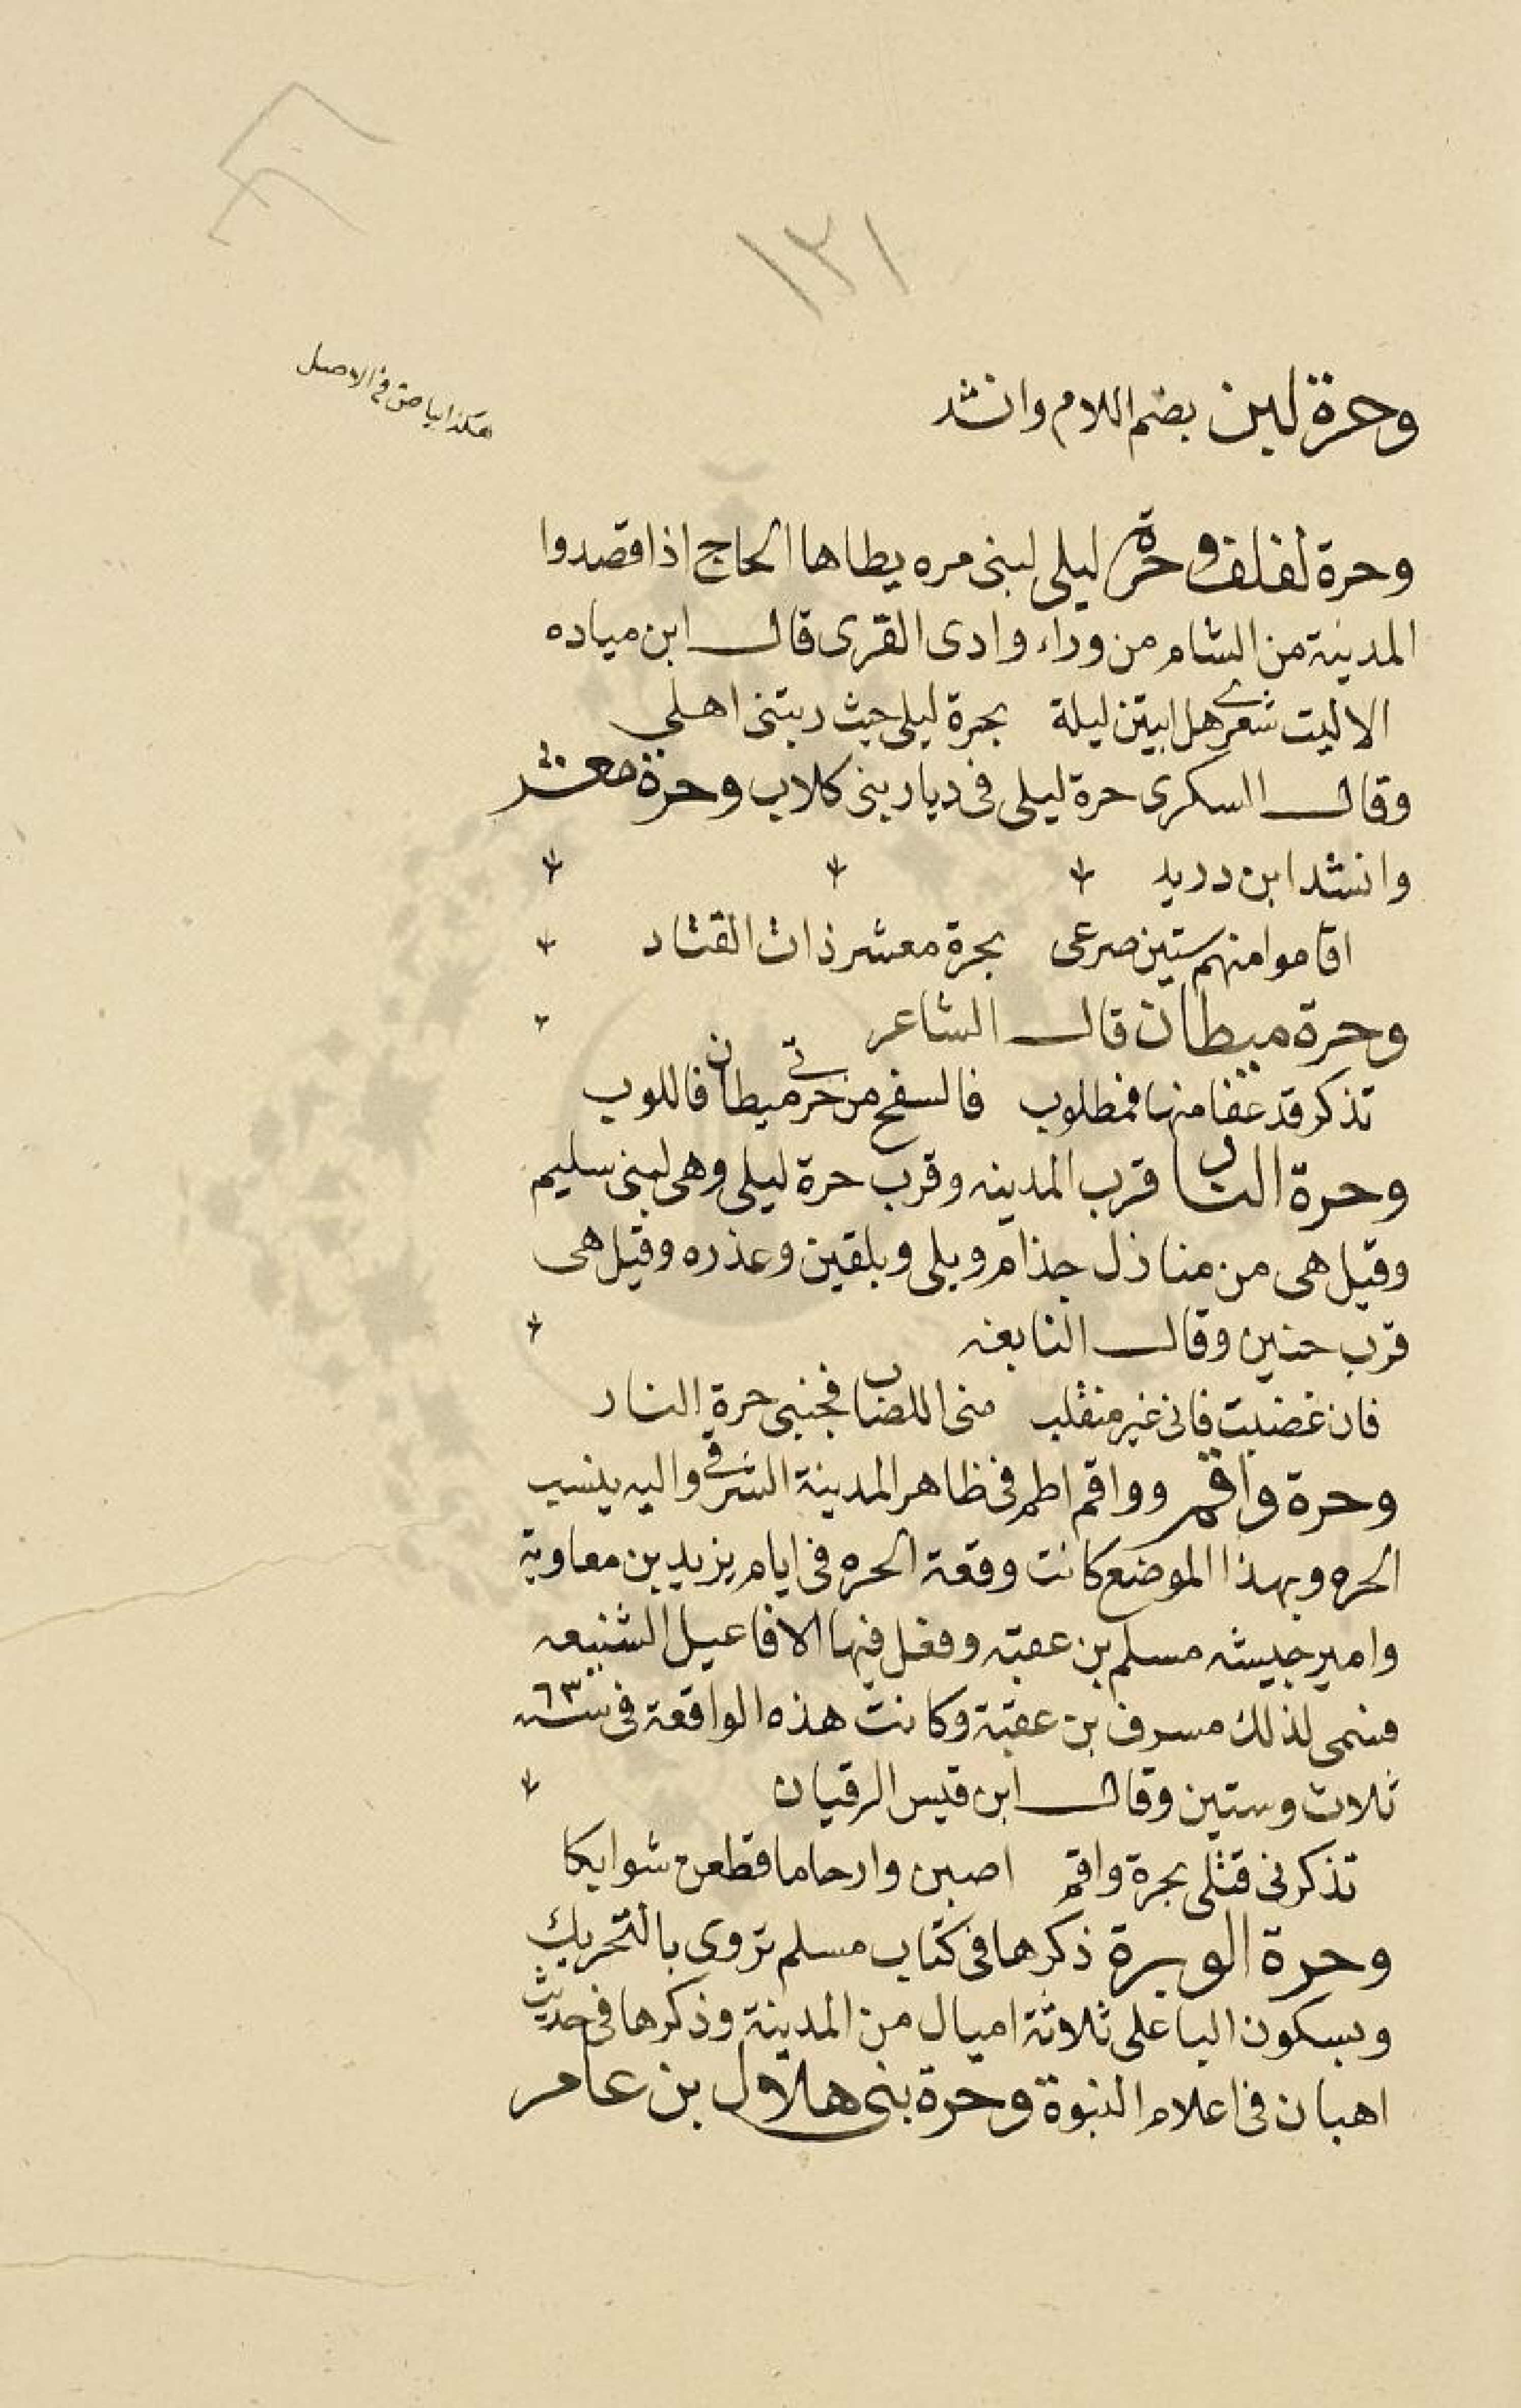 ١٣١
هكذا بياض في الاصل
وحرة لبن بضم اللام وانشد
وحرة لفلف وحرة ليلى لبنى مره يطاها الحاج اذا قصدوا
المدينة من الشام من وراء وادى القرى قال ابن مياده
الا ليت شعرى هل ابيتن ليلة بحرة ليلى حيث ربتنى اهلى
وقال السكرى حرة ليلى فى ديار بنى كلاب وحرة معشر
وانشد ابن دريد
اقاموا منهم ستين صرعى بحرة معشر ذات القتاد
وحرة ميطان قال الشاعر
تذكر قد عفا منها فمطلوب فالسفح من حرتى ميطان فاللوب
وحرة النار قرب المدينه وقرب حرة ليلى وهى لبنى سليم
وقيل هى من منازل جذام وبلى وبلقين وعذره وقيل هى
قرب حنين وقال النابغه
فان غضبت فانى غير منفلب منى اللصاب فجنبى حرة النار
وحرة واقم وواقم اطم فى ظاهر المدينة الشرقى واليه ينسب
الحره وبهذا الموضع كانت وقعة الحره فى ايام يزيد بن معاوية
وامير جيشه مسلم بن عقبة وفعل فيها الافاعيل الشنيعه
فسمى لذلك مسرف بن عقبة وكانت هذه الواقعة فى سنه ٦٣
ثلاث وستين وقال ابن قيس الرقيان
تذكرنى قتلى بحرة واقم اصبن وارحاما قطعن شوابكا
وحرة الوبرة ذكرها فى كتاب مسلم تروى بالتحريك
وبسكون البا على ثلاثة اميال من المدينة وذكرها فى حديث
اهبان فى اعلام النبوة وحرة بنى هلال بن عامر